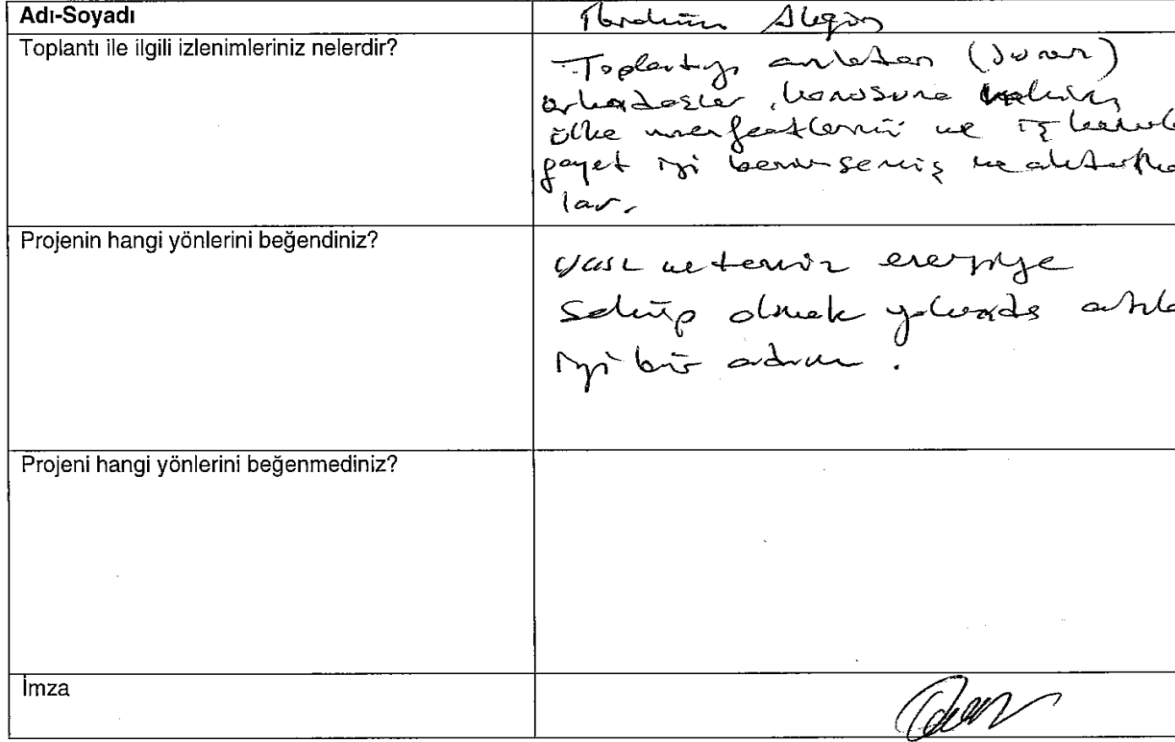 Adı-Soyadı
İbrahim
Toplantı ile ilgili izlenimleriniz nelerdir?
Toplantıyı anlatan (sunan)
arkadaşlar, konusuna hakim,
ülke menfeatlerini ve iş
gayet iyi benimsemiş ve
lar.
Projenin hangi yönlerini beğendiniz?
ve temiz enerjiye
sahip olmak yolunda
iyi bir adım.
Projeni hangi yönlerini beğenmediniz?
İmza